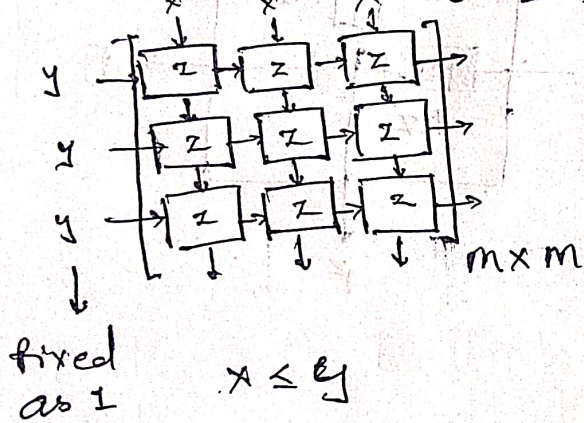 x x x
y z z z
y z z z
y z z z
m x m
fixed
as 1
x ≤ y